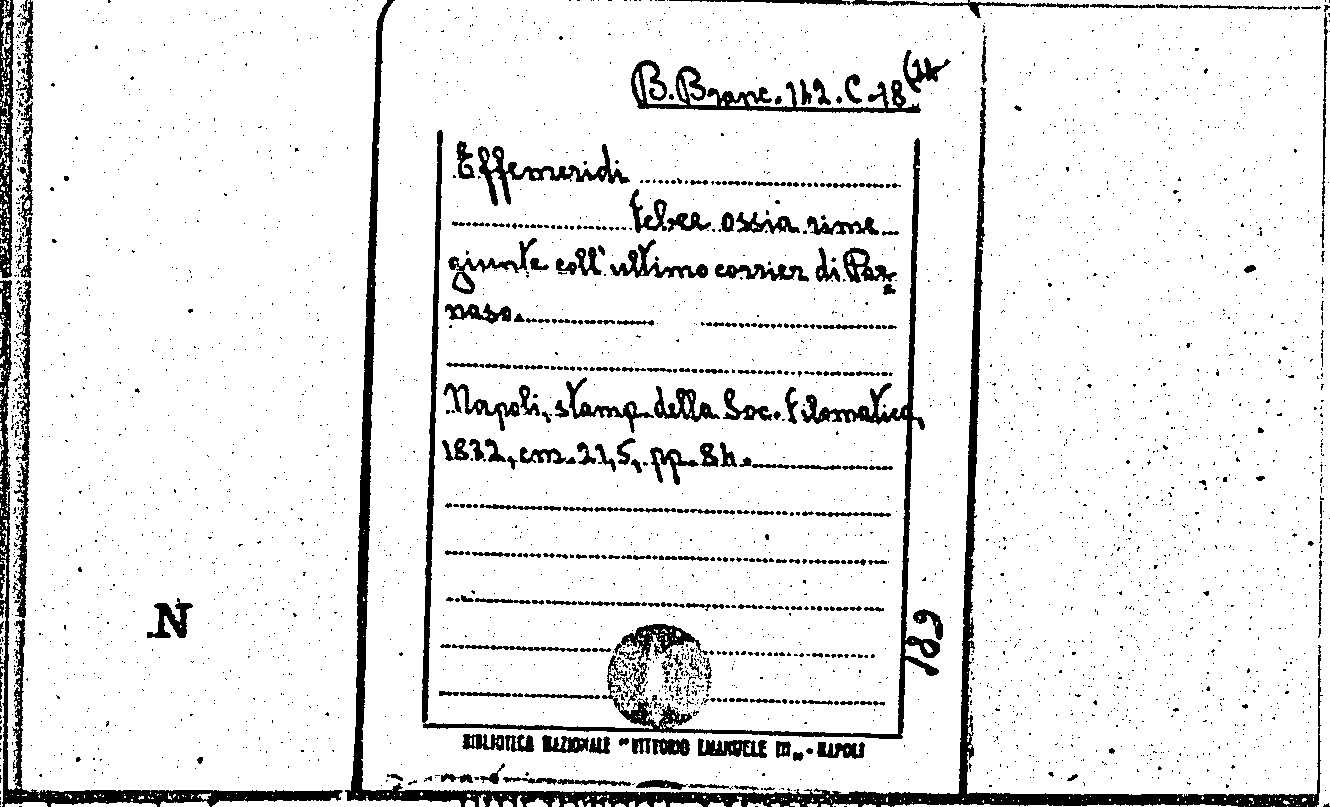 B. Branc. 142. C. 18 (14
Effemeridi
febee ossia rime
giunte coll' ultimo corrier di Par=
naso.
Napoli, stamp. della Soc. Filomatica,
1832, cm. 21,5, pp. 84.
N
189
BIBLIOTECA NAZIONALE "VITTORIO EMANUELE III" - NAPOLI